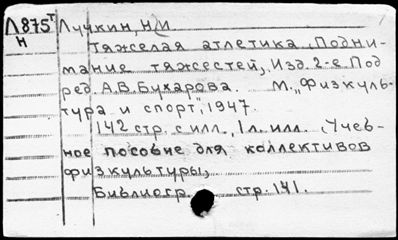 Л875т Лучкин, Н И
Н
Тяжелая атлетика. (Подни-
мание тяжестей), Изд. 2-е. Под
ред. А.В. Бухарова. М. „Физкуль-
тура и спорт", 1947.
142 стр. с илл., 1 л. илл. (Учеб-
ное пособие для коллективов
физкультуры)
Библиогр. стр. 141.